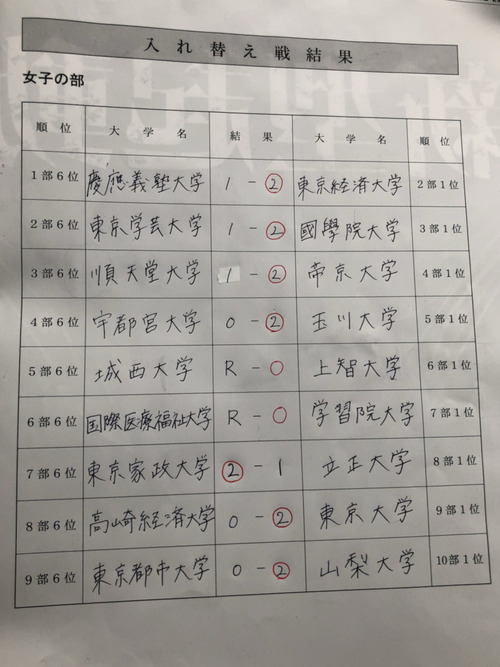 入れ替え戦結果
女子の部
順位 大学名 結果 大学名 順位
1部6位 慶應義塾大学 1 - ② 東京経済大学 2部1位
2部6位 東京学芸大学 1 - ② 國學院大学 3部1位
3部6位 順天堂大学 1 - ② 帝京大学 4部1位
4部6位 宇都宮大学 0 - ② 玉川大学 5部1位
5部6位 城西大学 R - ○ 上智大学 6部1位
6部6位 国際医療福祉大学 R - ○ 学習院大学 7部1位
7部6位 東京家政大学 ② - 1 立正大学 8部1位
8部6位 高崎経済大学 0 - ② 東京大学 9部1位
9部6位 東京都市大学 0 - ② 山梨大学 10部1位